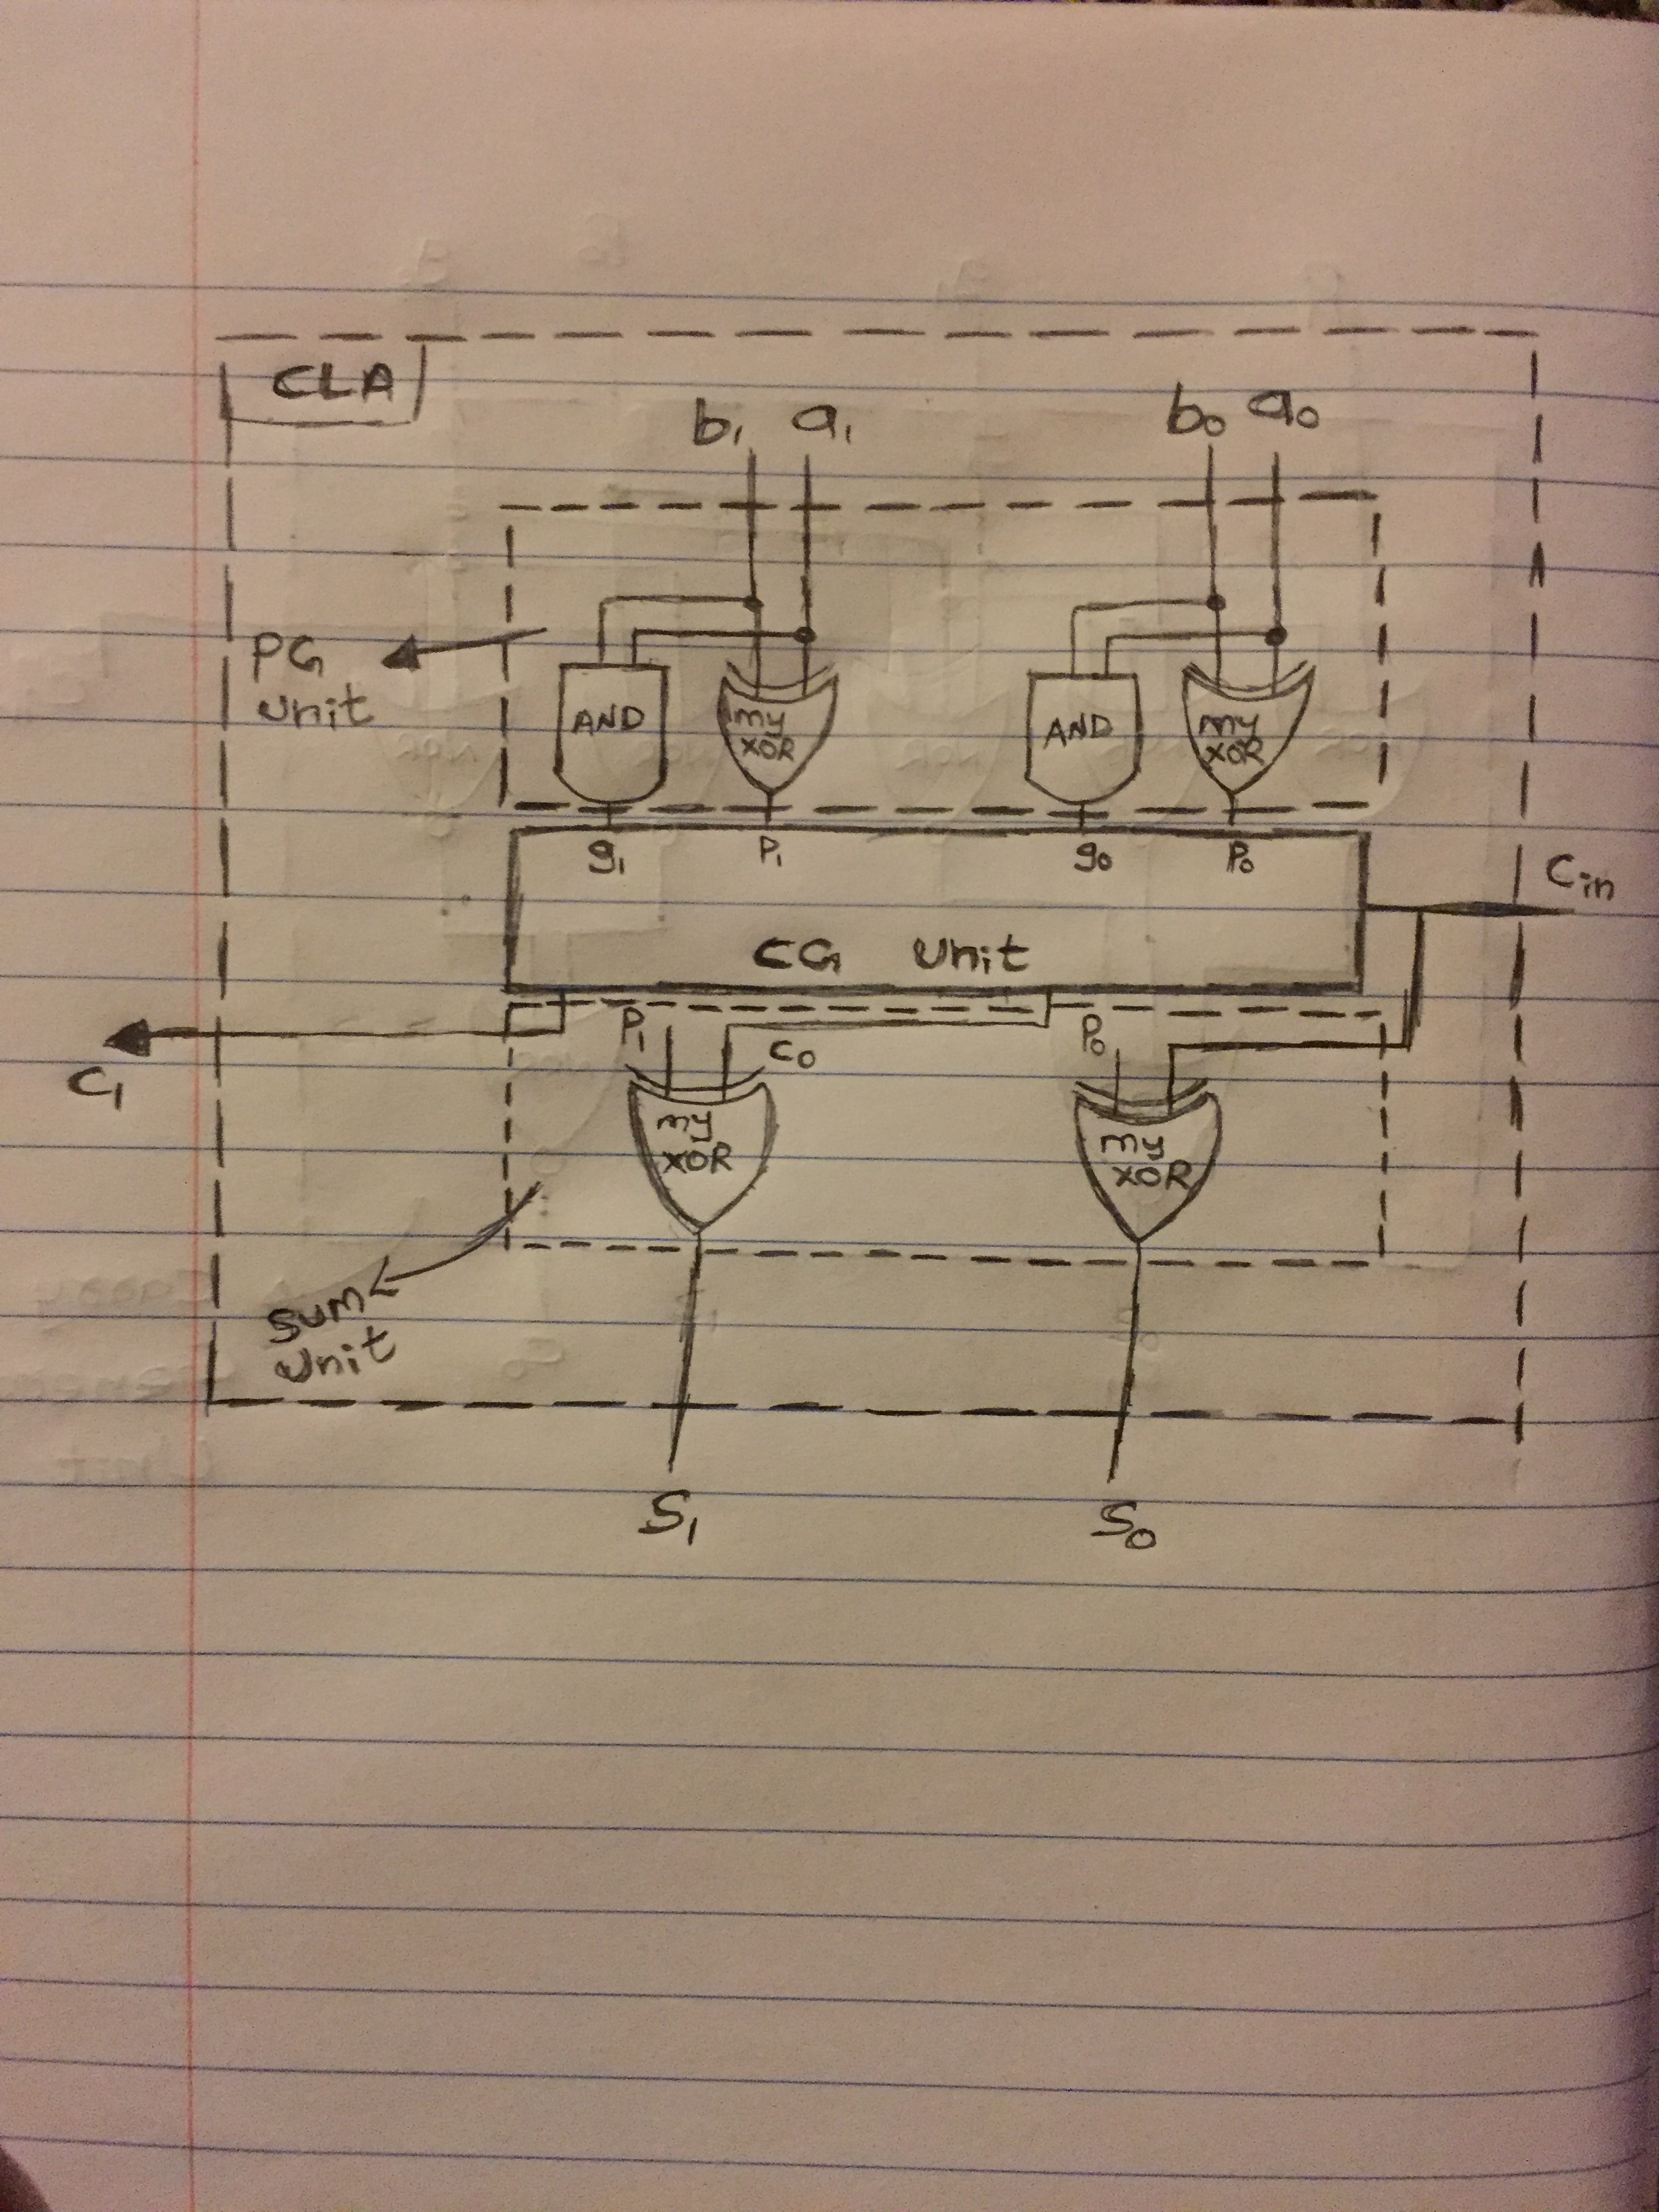 CLA
b₁ a₁ b₀ a₀
PG
unit
AND my
XOR AND my
XOR
g₁ P₁ g₀ P₀
Cin
CG unit
P₁ C₀ P₀
C₁
my
XOR my
XOR
Sum
unit
S₁ S₀